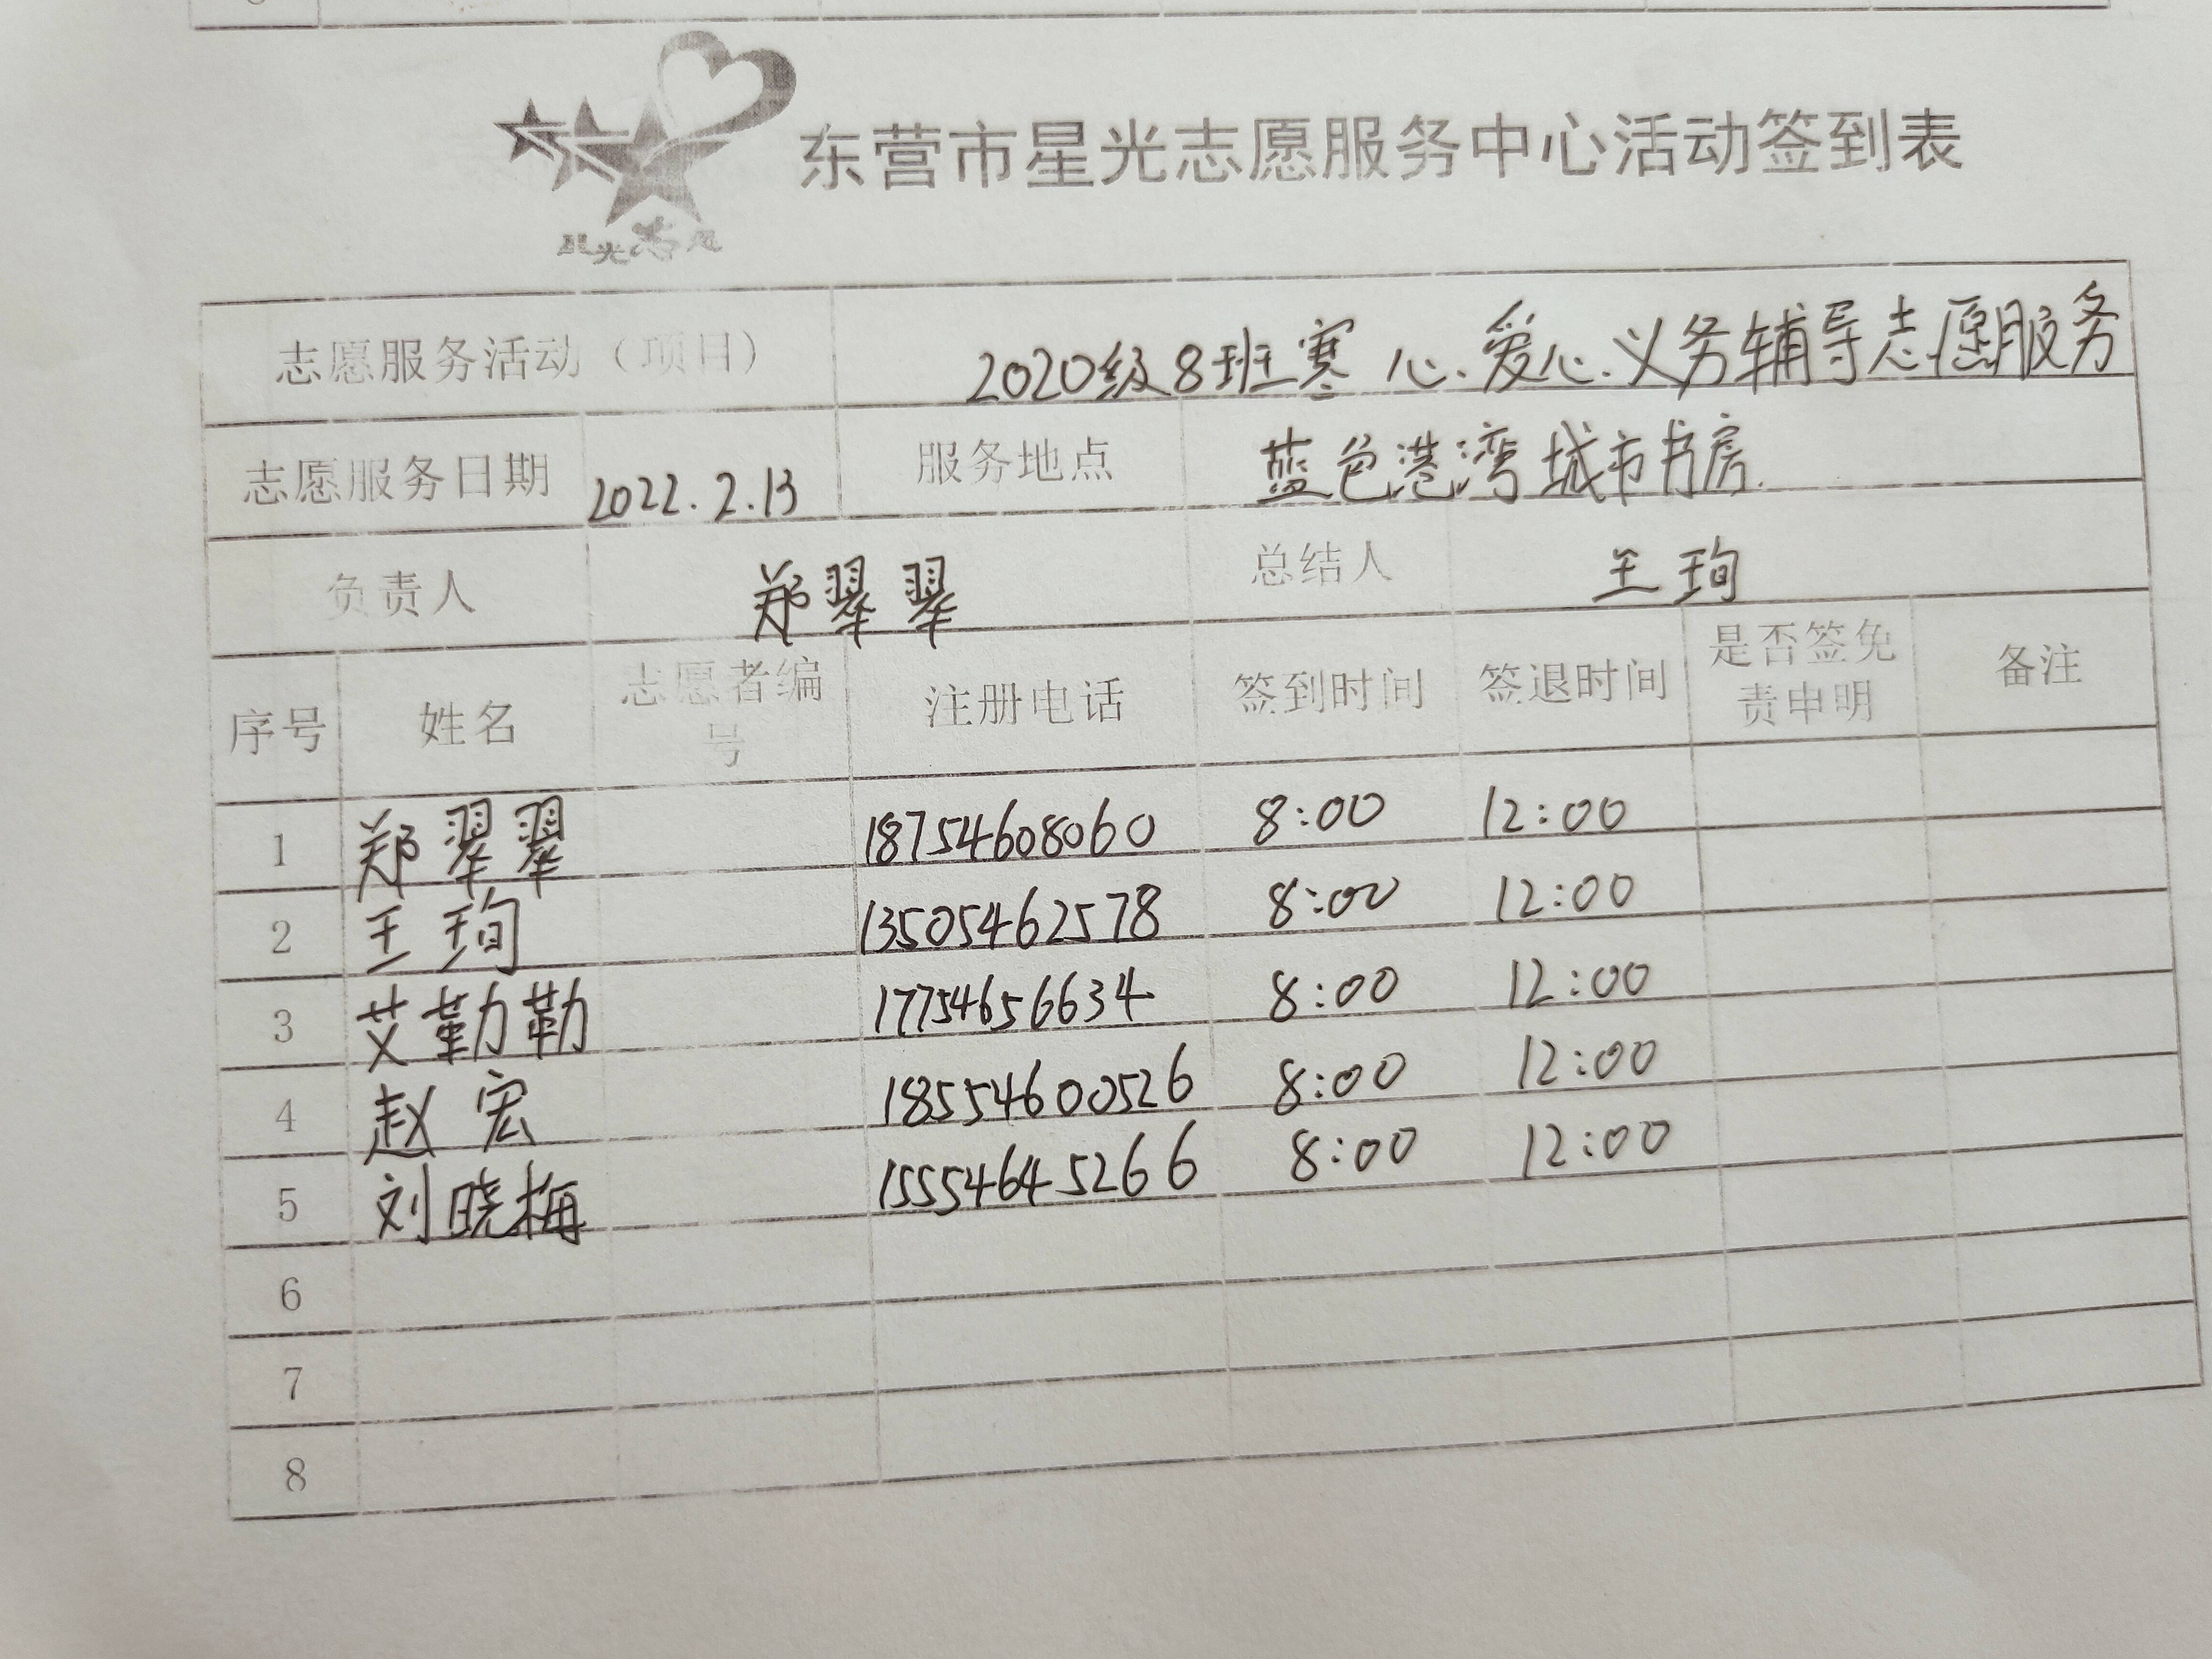 东营市星光志愿服务中心活动签到表
星光志愿
志愿服务活动（项目） 2020级8班寒 心、爱心、义务辅导志愿服务
志愿服务日期 2022.2.13 服务地点 蓝色港湾城市书房.
负责人 郑翠翠 总结人 王珣
序号 姓名 志愿者编号 注册电话 签到时间 签退时间 是否签免责申明 备注
1 郑翠翠 18754608060 8:00 12:00
2 王珣 13505462578 8:00 12:00
3 艾勤勤 17754656634 8:00 12:00
4 赵宏 18554600526 8:00 12:00
5 刘晓梅 15554645266 8:00 12:00
6
7
8